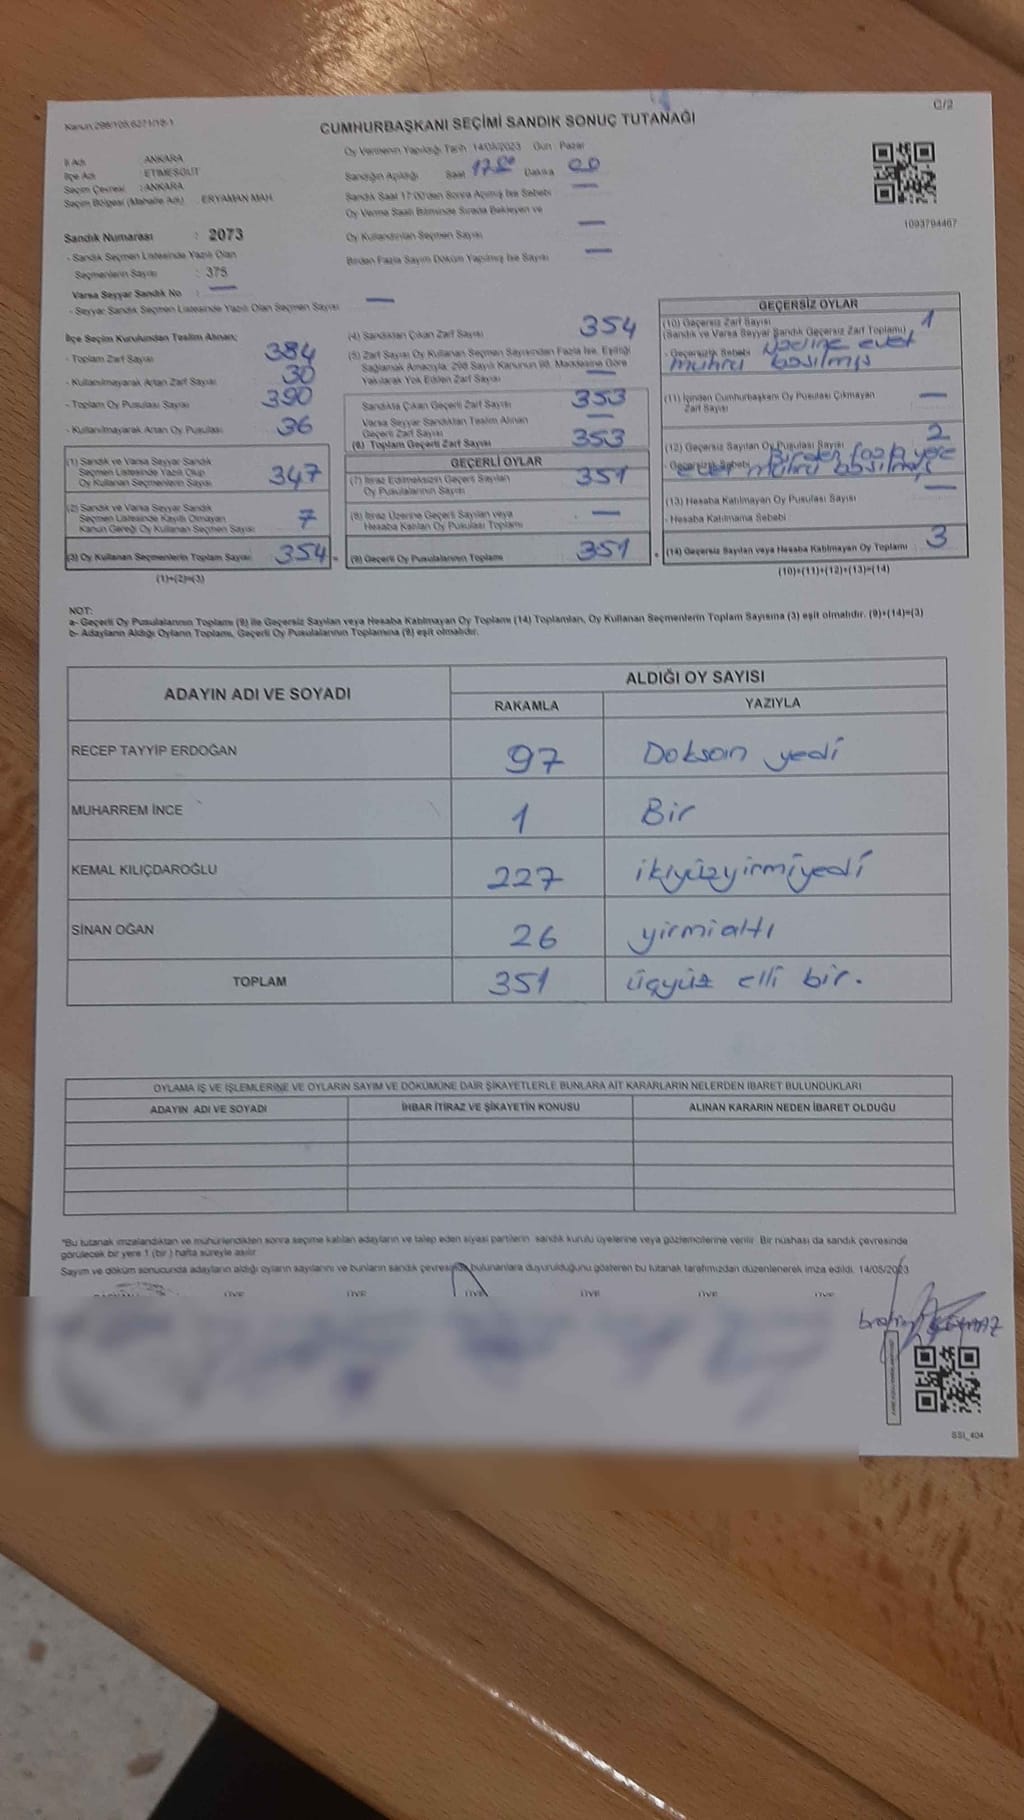 Kanun:298/105,6271/18-1
C/2
CUMHURBAŞKANI SEÇİMİ SANDIK SONUÇ TUTANAĞI
İl Adı : ANKARA
İlçe Adı : ETİMESGUT
Seçim Çevresi : ANKARA
Seçim Bölgesi (Mahalle Adı) : ERYAMAN MAH.
Oy Vermenin Yapıldığı Tarih : 14/05/2023 Gün : Pazar
Sandığın Açıldığı Saat 17:00 Dakika 00
Sandık Saat 17:00'den Sonra Açılmış İse Sebebi —
Oy Verme Saati Bitiminde Sırada Bekleyen ve
Oy Kullandırılan Seçmen Sayısı —
Birden Fazla Sayım Döküm Yapılmış İse Sayısı —
1093794467
Sandık Numarası : 2073
- Sandık Seçmen Listesinde Yazılı Olan
Seçmenlerin Sayısı : 375
Varsa Seyyar Sandık No : —
- Seyyar Sandık Seçmen Listesinde Yazılı Olan Seçmen Sayısı —
İlçe Seçim Kurulundan Teslim Alınan;
- Toplam Zarf Sayısı 384
- Kullanılmayarak Artan Zarf Sayısı 30
- Toplam Oy Pusulası Sayısı 390
- Kullanılmayarak Artan Oy Pusulası 36
(1) Sandık ve Varsa Seyyar Sandık
Seçmen Listesinde Yazılı Olup
Oy Kullanan Seçmenlerin Sayısı 347
(2) Sandık ve Varsa Seyyar Sandık
Seçmen Listesinde Kayıtlı Olmayan
Kanun Gereği Oy Kullanan Seçmen Sayısı 7
(3) Oy Kullanan Seçmenlerin Toplam Sayısı 354 =
(1)+(2)=(3)
(4) Sandıktan Çıkan Zarf Sayısı 354
(5) Zarf Sayısı Oy Kullanan Seçmen Sayısından Fazla İse, Eşitliği
Sağlamak Amacıyla, 298 Sayılı Kanunun 98. Maddesine Göre
Yakılarak Yok Edilen Zarf Sayısı —
Sandıkta Çıkan Geçerli Zarf Sayısı 353
Varsa Seyyar Sandıktan Teslim Alınan
Geçerli Zarf Sayısı —
(6) Toplam Geçerli Zarf Sayısı 353
GEÇERLİ OYLAR
(7) İtiraz Edilmeksizin Geçerli Sayılan
Oy Pusulalarının Sayısı 351
(8) İtiraz Üzerine Geçerli Sayılan veya
Hesaba Katılan Oy Pusulası Toplamı —
(9) Geçerli Oy Pusulalarının Toplamı 351 +
GEÇERSİZ OYLAR
(10) Geçersiz Zarf Sayısı
(Sandık ve Varsa Seyyar Sandık Geçersiz Zarf Toplamı) 1
- Geçersizlik Sebebi evet
mührü basılmış
(11) İçinden Cumhurbaşkanı Oy Pusulası Çıkmayan
Zarf Sayısı —
(12) Geçersiz Sayılan Oy Pusulası Sayısı 2
- Geçersizlik Sebebi Birden fazla yere
evet mührü basılmış
(13) Hesaba Katılmayan Oy Pusulası Sayısı —
- Hesaba Katılmama Sebebi
(14) Geçersiz Sayılan veya Hesaba Katılmayan Oy Toplamı 3
(10)+(11)+(12)+(13)=(14)
NOT:
a- Geçerli Oy Pusulalarının Toplamı (9) ile Geçersiz Sayılan veya Hesaba Katılmayan Oy Toplamı (14) Toplamları, Oy Kullanan Seçmenlerin Toplam Sayısına (3) eşit olmalıdır. (9)+(14)=(3)
b- Adayların Aldığı Oyların Toplamı, Geçerli Oy Pusulalarının Toplamına (9) eşit olmalıdır.
ADAYIN ADI VE SOYADI
ALDIĞI OY SAYISI
RAKAMLA YAZIYLA
RECEP TAYYİP ERDOĞAN 97 Doksan yedi
MUHARREM İNCE 1 Bir
KEMAL KILIÇDAROĞLU 227 ikiyüzyirmiyedi
SİNAN OĞAN 26 yirmialtı
TOPLAM 351 üçyüz elli bir.
OYLAMA İŞ VE İŞLEMLERİNE VE OYLARIN SAYIM VE DÖKÜMÜNE DAİR ŞİKAYETLERLE BUNLARA AİT KARARLARIN NELERDEN İBARET BULUNDUKLARI
ADAYIN ADI VE SOYADI İHBAR İTİRAZ VE ŞİKAYETİN KONUSU ALINAN KARARIN NEDEN İBARET OLDUĞU
"Bu tutanak imzalandıktan ve mühürlendikten sonra seçime katılan adayların ve talep eden siyasi partilerin sandık kurulu üyelerine veya gözlemcilerine verilir. Bir nüshası da sandık çevresinde
görülecek bir yere 1 (bir) hafta süreyle asılır.
Sayım ve döküm sonucunda adayların aldığı oyların sayılarını ve bunların sandık çevresinde bulunanlara duyurulduğunu gösteren bu tutanak tarafımızdan düzenlenerek imza edildi. 14/05/2023
ÜYE ÜYE ÜYE ÜYE ÜYE ÜYE
SSI_404